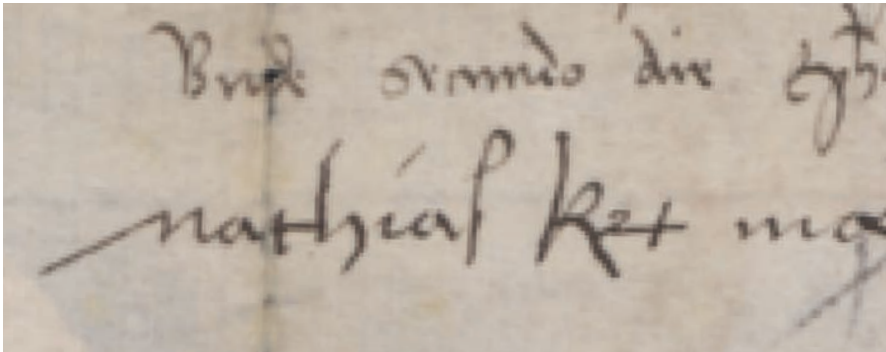 Bude secundo die
mathias Rex ma